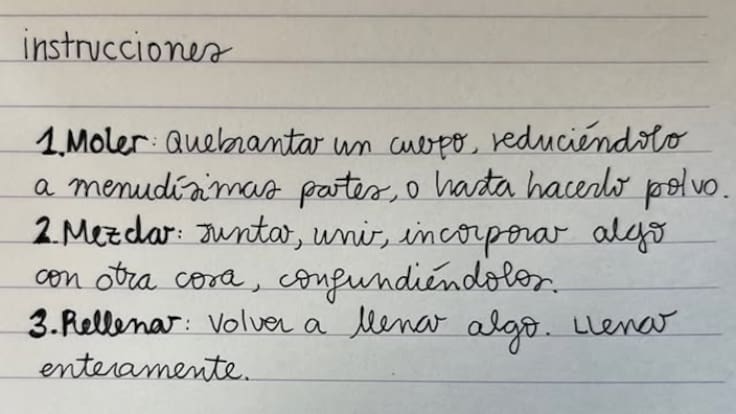 instrucciones
1. Moler: Quebrantar un cuerpo, reduciéndolo
a menudísimas partes, o hasta hacerlo polvo.
2. Mezclar: Juntar, unir, incorporar algo
con otra cosa, confundiéndolos.
3. Rellenar: Volver a llenar algo. Llenar
enteramente.